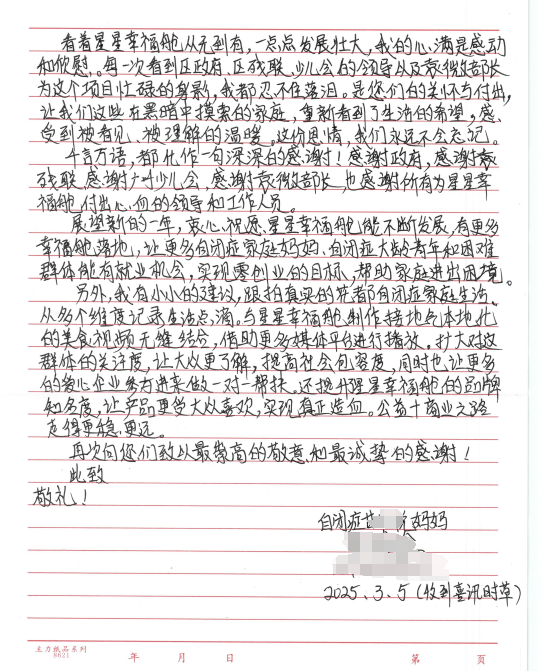 看着星星幸福舱从无到有,一点点发展壮大,我的心满是感动
和欣慰。每一次看到区政府、区残联、少儿会的领导以及袁微部长
为这个项目忙碌的身影,我都忍不住落泪。是您们的关怀与付出,
让我们这些在黑暗中摸索的家庭,重新看到了生活的希望,感
受到被看见、被理解的温暖。这份恩情,我们永远不会忘记。
千言万语,都化作一句深深的感谢!感谢政府,感谢区
残联,感谢广州少儿会,感谢袁微部长,也感谢所有为星星幸
福舱付出心血的领导和工作人员。
展望新的一年,衷心祝愿星星幸福舱能不断发展,有更多
幸福舱落地,让更多自闭症家庭妈妈、自闭症大龄青年和困难
群体能有就业机会,实现零创业的目标,帮助家庭走出困境。
另外,我有小小的建议,跟拍真实的 自闭症家庭生活。
从多个维度记录生活点滴,与星星幸福舱制作接地气本地化
的美食视频无缝结合,借助更多媒体平台进行播放。扩大对这
群体的关注度,让大众更了解,提高社会包容度,同时也让更多
的爱心企业参与进来做一对一帮扶,还提升星星幸福舱的品牌
知名度,让产品更受大众喜欢,实现真正造血。公益+商业之路
走得更稳、更远。
再次向您们致以最崇高的敬意和最诚挚的感谢!
此致
敬礼!
自闭症 妈妈
2025.3.5(收到喜讯时草)
主力纸品系列
8621
年 月 日 第 页